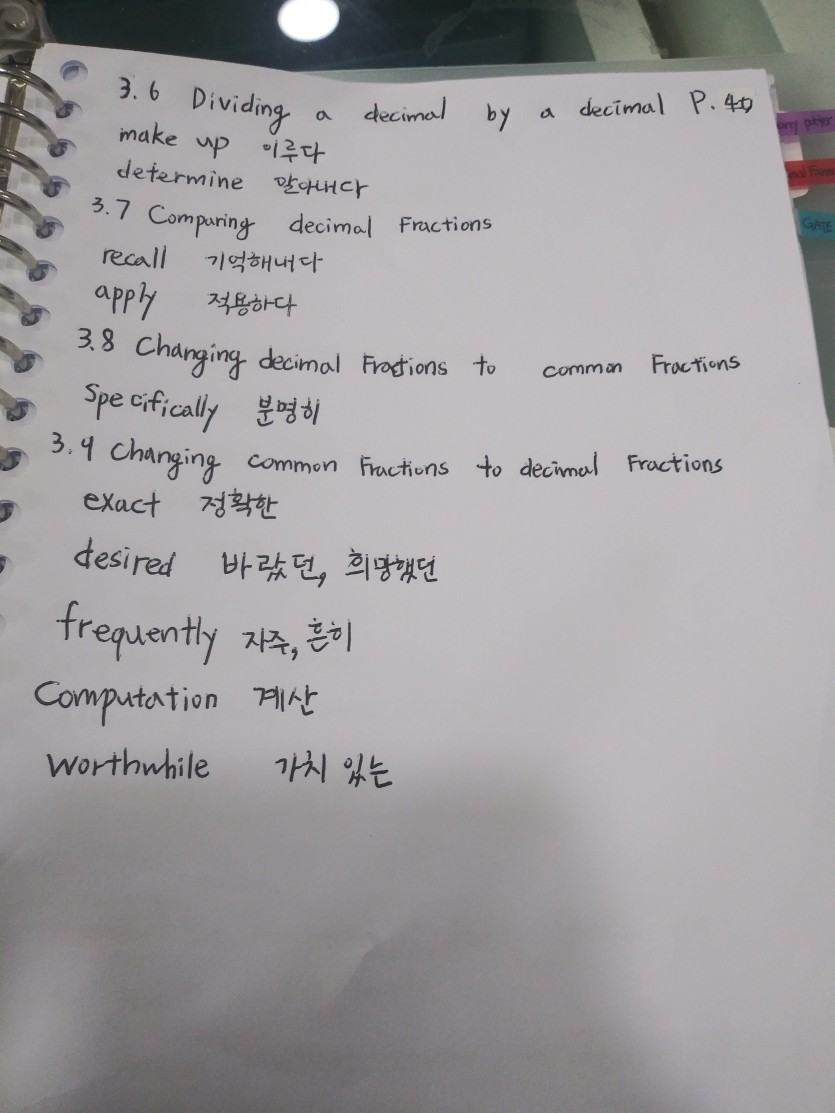 3.6 Dividing a decimal by a decimal P.
make up 이루다
determine 알아내다
3.7 Comparing decimal Fractions
recall 기억해내다
apply 적용하다
3.8 Changing decimal Fractions to common Fractions
Specifically 분명히
3.9 Changing common Fractions to decimal Fractions
exact 정확한
desired 바랐던, 희망했던
frequently 자주, 흔히
Computation 계산
worthwhile 가치 있는
GATE